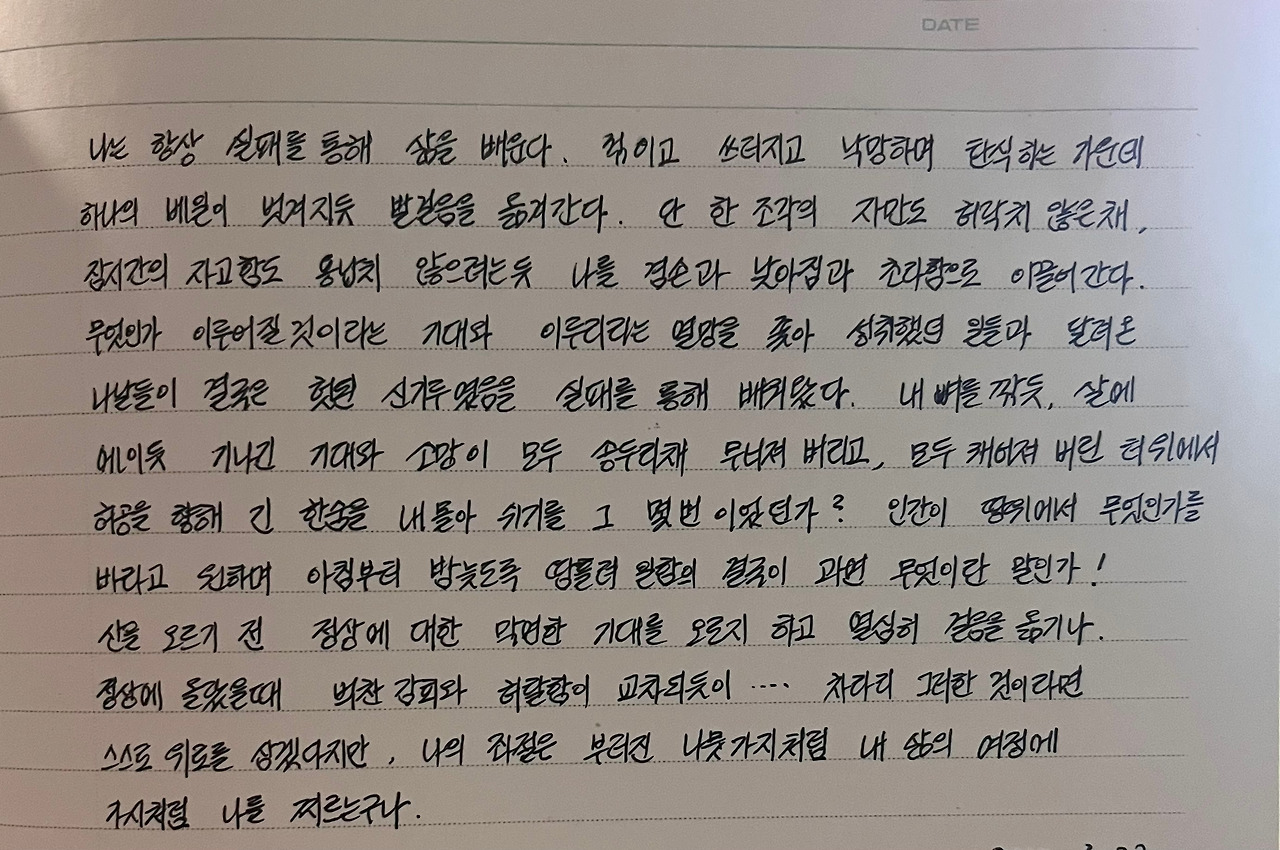 DATE
나는 항상 실패를 통해 삶을 배운다. 꺾이고 쓰러지고 낙망하며 탄식하는 가운데
하나의 베일이 벗겨지듯 발걸음을 옮겨간다. 단 한 조각의 자만도 허락치 않은채,
잠시간의 자고함도 용납치 않으려는듯 나를 겸손과 낮아짐과 초라함으로 이끌어간다.
무엇인가 이루어질것이라는 기대와 이루리라는 열망을 좇아 성취했던 일들과 달려온
나날들이 결국은 헛된 신기루였음을 실패를 통해 배워왔다. 내 뼈를 깎듯, 살에
에이듯 기나긴 기대와 소망이 모두 송두리채 무너져 버리고, 모두 캐어져 버린 터위에서
허공을 향해 긴 한숨을 내몰아 쉬기를 그 몇번이었던가? 인간이 땅위에서 무엇인가를
바라고 원하며 아침부터 밤늦도록 땀흘려 일함의 결국이 과연 무엇이란 말인가!
산을 오르기 전 정상에 대한 막연한 기대를 오르지 하고 열심히 걸음을 옮기나.
정상에 올랐을때 벅찬 감회와 허탈함이 교차되듯이 .... 차라리 그러한 것이라면
스스로 위로를 삼겠다지만, 나의 좌절은 부러진 나뭇가지처럼 내 삶의 여정에
가시처럼 나를 찌르는구나.